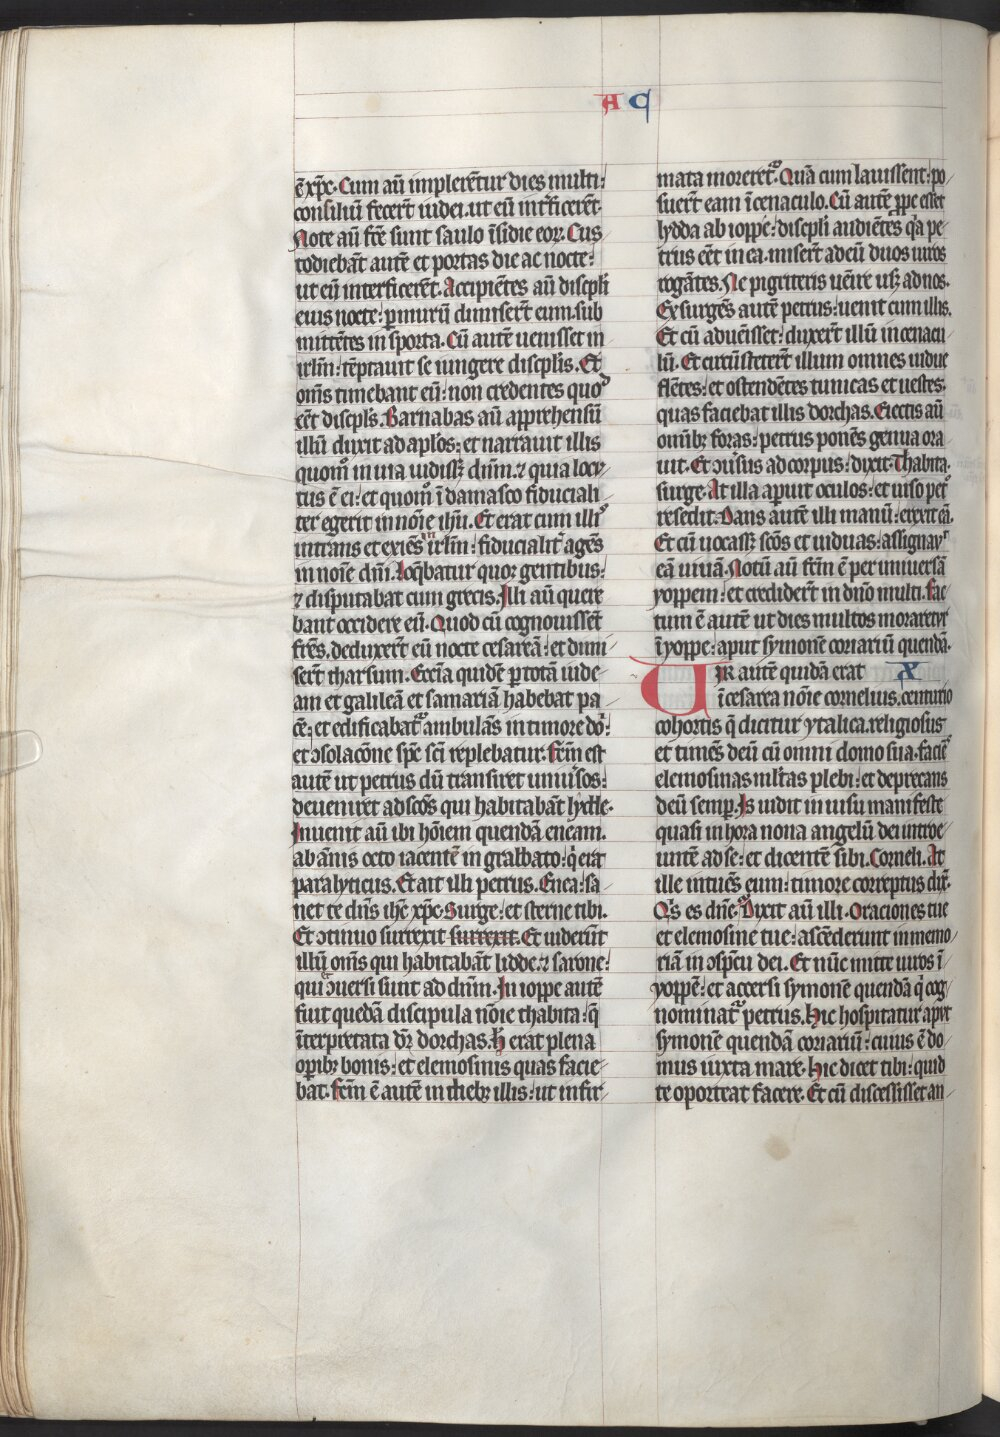 A C
ē xp̄c. Cum aū implerētur dies multi:
consiliū fecerr̄t iudei. ut eū int̄ficerēt.
Note aū fc̄e sunt saulo īsidie eoꝝ. Cus
todiebāt autē et portas die ac nocte:
ut eū interficerēt. Accipiētes aū discp̄li
eius nocte: ꝑ murū dimiser̄t eum. sub
mittētes in sporta. Cū autē uenisset in
irlm̄: tēptauit se iungere discp̄lis. Et
om̄s timebant eū: non credentes quod
eēt discpl̄s. Barnabas aū apprehensū
illū duxit ad apl̄os: et narrauit illis
quom̊ in uia uidissꝫ dūm. ⁊ quia locu
tus ē ei: et quom̊ ī damasco fiduciali
ter egerit in noīe ih̄u. Et erat cum illis
intrans et exiēs in irlm̄: fiducialit̄ agēs
in noīe dn̄i. Loq̄batur quoꝫ gentibus:
⁊ disputabat cum grecis. Illi aū quere
bant occidere eū. Quod cū cognouissēt
fr̄es. deduxer̄t eū nocte cesareā: et dimi
ser̄t tharsum. Ecc̄ia quidē ꝑ totā iude
am et galileā et samariā habebat pa
cē: et edificabat᷑ ambulās in timore do᷑:
et ↄsolacōne sp̄c sc̄i replebatur. Fc̄m est
autē ut petrus dū transiret uniu᷑sos:
deueniret ad sc̄os qui habitabāt lydde.
Inuenit aū ibi hōiem quendā eneam.
ab ānis octo iacentē in grabbato: q̄ erat
paralyticus. Et ait illi petrus. Enea: sa
net te dn̄s ih̄c xp̄c. Surge: et sterne tibi.
Et ↄtinuo surrexit surrexit. Et uiderūt
illū om̄s qui habitabāt lidde. ⁊ sarone:
qui ↄuersi sunt ad dūm. In ioppe autē
fuit quedā discipula noīe thabita: q̄
īterpretata dr̄ dorchas. H᷑ erat plena
oꝑibꝫ bonis: et elemosinis quas facie
bat. Fc̄m ē autē in diebꝫ illis: ut infir
mata moreret᷑. Quā cum lauissent: po
suer̄t eam ī cenaculo. Cū autē ꝓpe esset
lydda ab ioppe: discipl̄i audiētes q̄a pe
trus eēt in ea. miser̄t ad eū duos uiros
rogātes. Ne pigriteris uēire usꝫ ad nos.
Exsurgēs autē petrus: uenit cum illis.
Et cū aduēisset: duxer̄t illū in cenacu
lū. Et circūsteter̄t illum omnes uidue
flētes: et ostendētes tunicas et uestes.
quas faciebat illis dorchas. Eiectis aū
om̄ibꝫ foras: petrus ponēs genua ora
uit. Et ↄu᷑sus ad corpus: dixit. Thabita.
surge. At illa aꝑuit oculos: et uiso petº
resedit. Dans autē illi manū: erexit eā.
Et cū uocassꝫ sc̄os et uiduas: assignauᵗ
eā uiuā. Notū aū fc̄m ē per uniuersā
yoppem: et credider̄t in dn̄o multi. Fac
tum ē autē ut dies multos moraretur
ī yoppe: aput symonē coriariū quendā.
UIR autē quidā erat X
ī cesarea noīe cornelius. centurio
cohortis q̄ dicitur ytalica. religiosus
et timēs deū cū omni domo sua. faciēs
elemosinas ml̄tas plebi: et deprecans
deū semꝑ. Is uidit in uisu manifeste
quasi in hora nona angelū dei introe
untē ad se: et dicentē sibi. Corneli. At
ille intuēs eum: timore correptus dix̄.
Qⁱs es dn̄e. Dixit aū illi. Oraciones tue
et elemosine tue: ascēderunt in memo
riā in ↄspc̄u dei. Et nūc mitte uiros ī
yoppē: et accersi symonē quendā q̄ cog
nominat᷑ petrus. Hic hospitatur aput
symonē quendā coriariū: cuius ē do
mus iuxta mare. Hic dicet tibi: quid
te oporteat facere. Et cū discessisset an